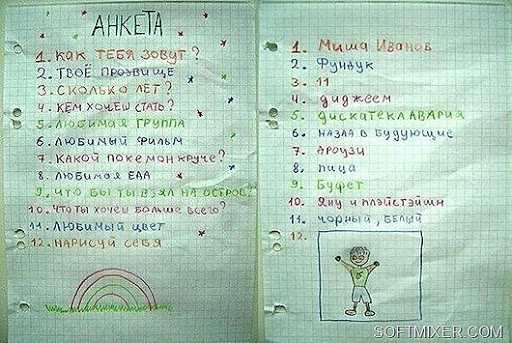 АНКЕТА
1. КАК ТЕБЯ ЗОВУТ?
2. ТВОЁ ПРОЗВИЩЕ
3. СКОЛЬКО ЛЕТ?
4. КЕМ ХОЧЕШ СТАТЬ?
5. ЛЮБИМАЯ ГРУППА
6. ЛЮБИМЫЙ ФИЛЬМ
7. КАКОЙ ПОКЕМОН КРУЧЕ?
8. ЛЮБИМАЯ ЕДА
9. ЧТО БЫ ТЫ ВЗЯЛ НА ОСТРОВ?
10. ЧТО ТЫ ХОЧЕШ БОЛЬШЕ ВСЕГО?
11. ЛЮБИМЫЙ ЦВЕТ
12. НАРИСУЙ СЕБЯ
1. Миша Иванов
2. Фундук
3. 11
4. диджеем
5. дискатека АВАРИЯ
6. назад в будующие
7. дроузи
8. пица
9. Буфет
10. Яну и плэйстэйшн
11. чорный, белый
12.
SOFTMIXER.COM